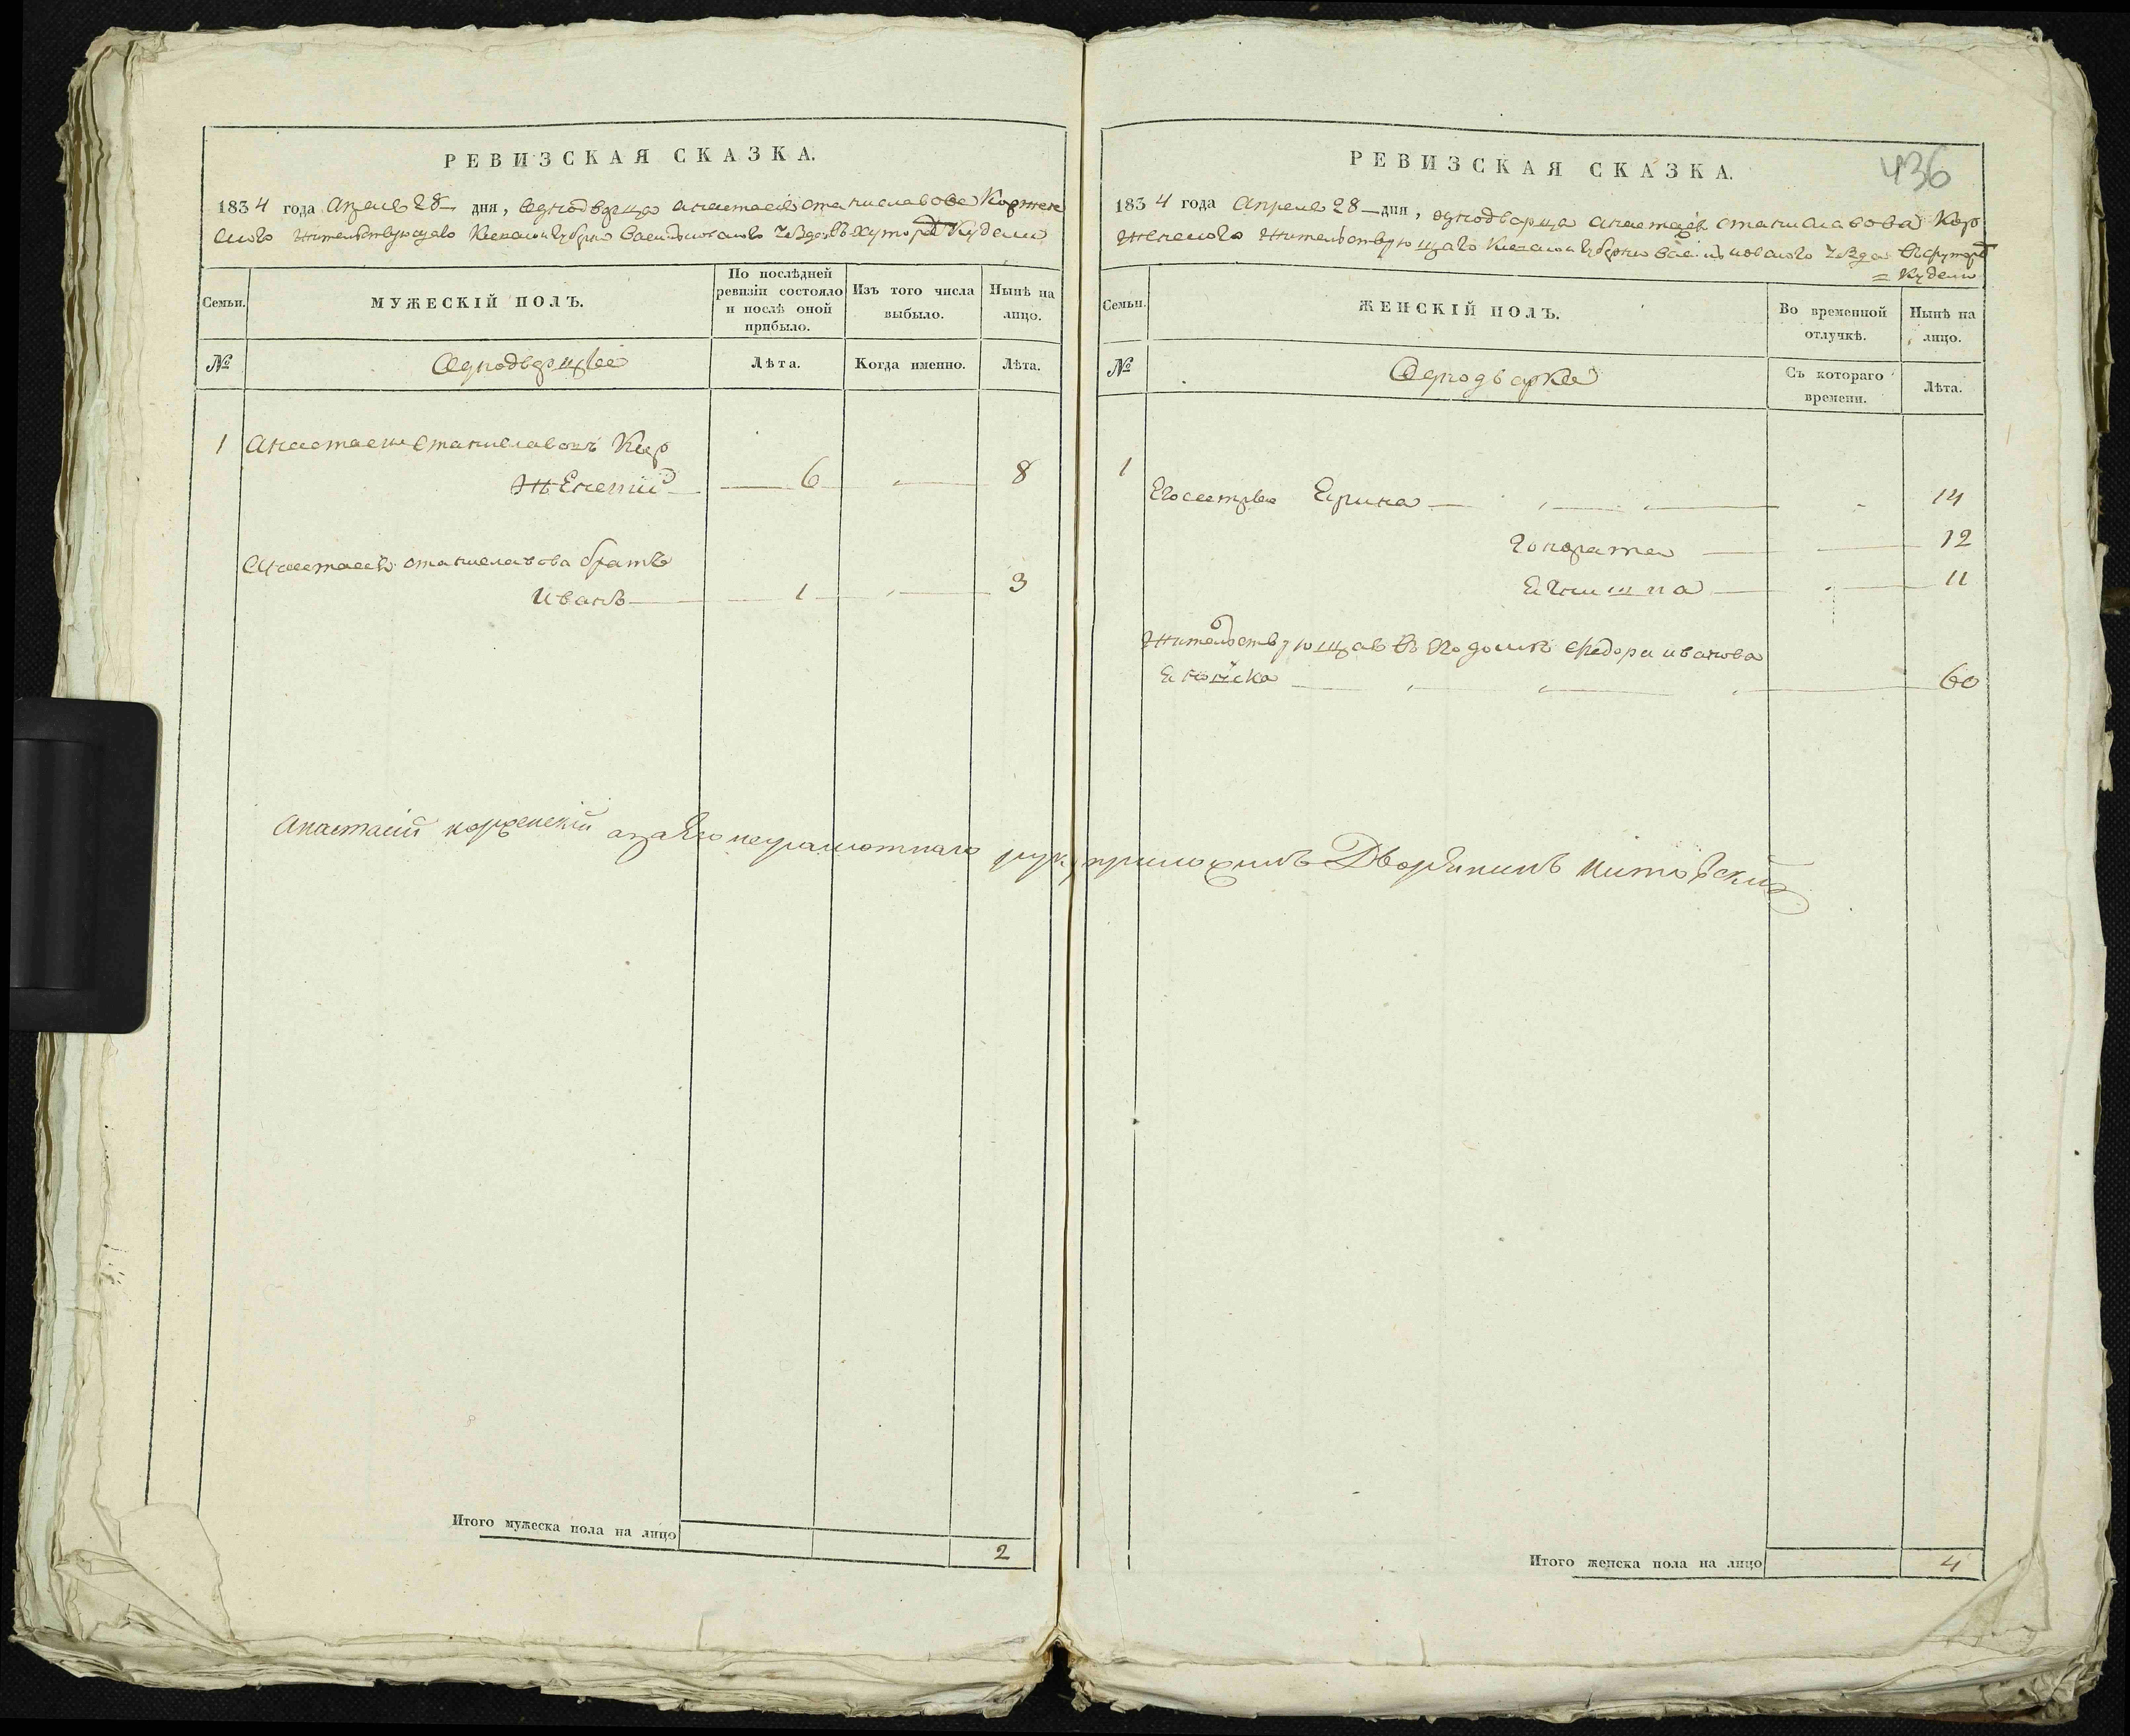 РЕВИЗСКАЯ СКАЗКА.
1834 года Апреля 28 дня, однодворца анастасія станиславова Коржен
скаго жительствующаго Киевской губерніи Васильковскаго уезда въ хуторѣ Кудели
Семьи.
МУЖЕСКІЙ ПОЛЪ.
По послѣдней ревизіи состояло и послѣ оной прибыло.
Изъ того числа выбыло.
Нынѣ на лицо.
№
Однодворцы
Лѣта.
Когда именно.
Лѣта.
1 Анастасій Станиславовъ Кор
женскій 6 8
Анастасія станиславова братъ
Иванъ 1 3
Анастасій корженскій а за его неграмотнаго руку приложилъ Дворянинъ
Итого мужеска пола на лицо 2
436
РЕВИЗСКАЯ СКАЗКА.
1834 года Апреля 28 дня, однодворца анастасія станиславова Кор
женскаго жительствующаго Киевской губерніи Васильковскаго уезда въ хуторѣ
= Кудели
Семьи.
ЖЕНСКІЙ ПОЛЪ.
Во временной отлучкѣ.
Нынѣ на лицо.
№
Однодворки
Съ котораго времени.
Лѣта.
1
Его сестры 14
Гонората 12
11
Жительствующая въ его домѣ Федора иванова
60
Итого женска пола на лицо 4